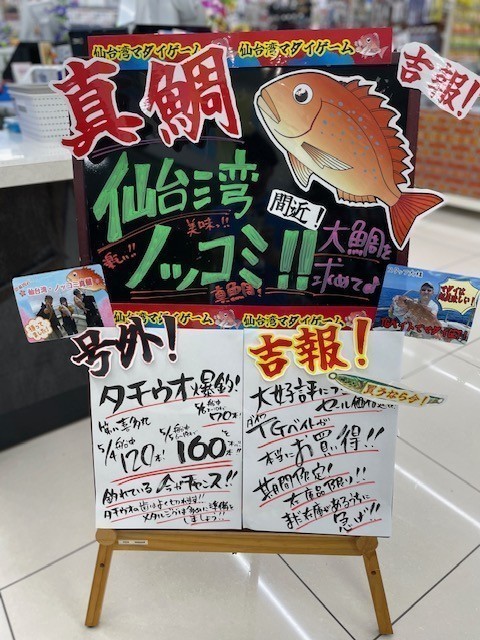 仙台湾マダイゲーム
仙台湾マダイゲーム
真鯛
吉報!
仙台湾
美味い!!
間近!
ノッコミ!!
大鯛を
求めて♪
仙台湾・ノッコミ真鯛
マダイは
仙台湾マダイゲーム
仙台湾マダイゲーム
号外!
タチウオ爆釣!
120本!
160本
釣れている今がチャンス!!
タチウオの歯はよく切れます!!
メタルジグは多めに準備を
しましょう
吉報!
買うなら今!
大好評に
TGベイトが
本当にお買い得!!
期間限定!
在庫品限り!!
まだ在庫がある内に
急げ!!